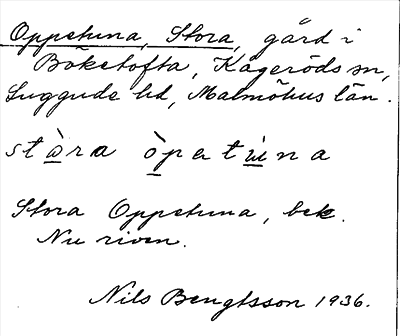 Oppetuna, Stora, gård i
Böketofta, Kågeröds sn,
Luggude hd, Malmöhus län.
stò̲ra ò̲patù̲na
Stora Oppetuna, bek.
Nu riven.
Nils Bengtsson 1936.